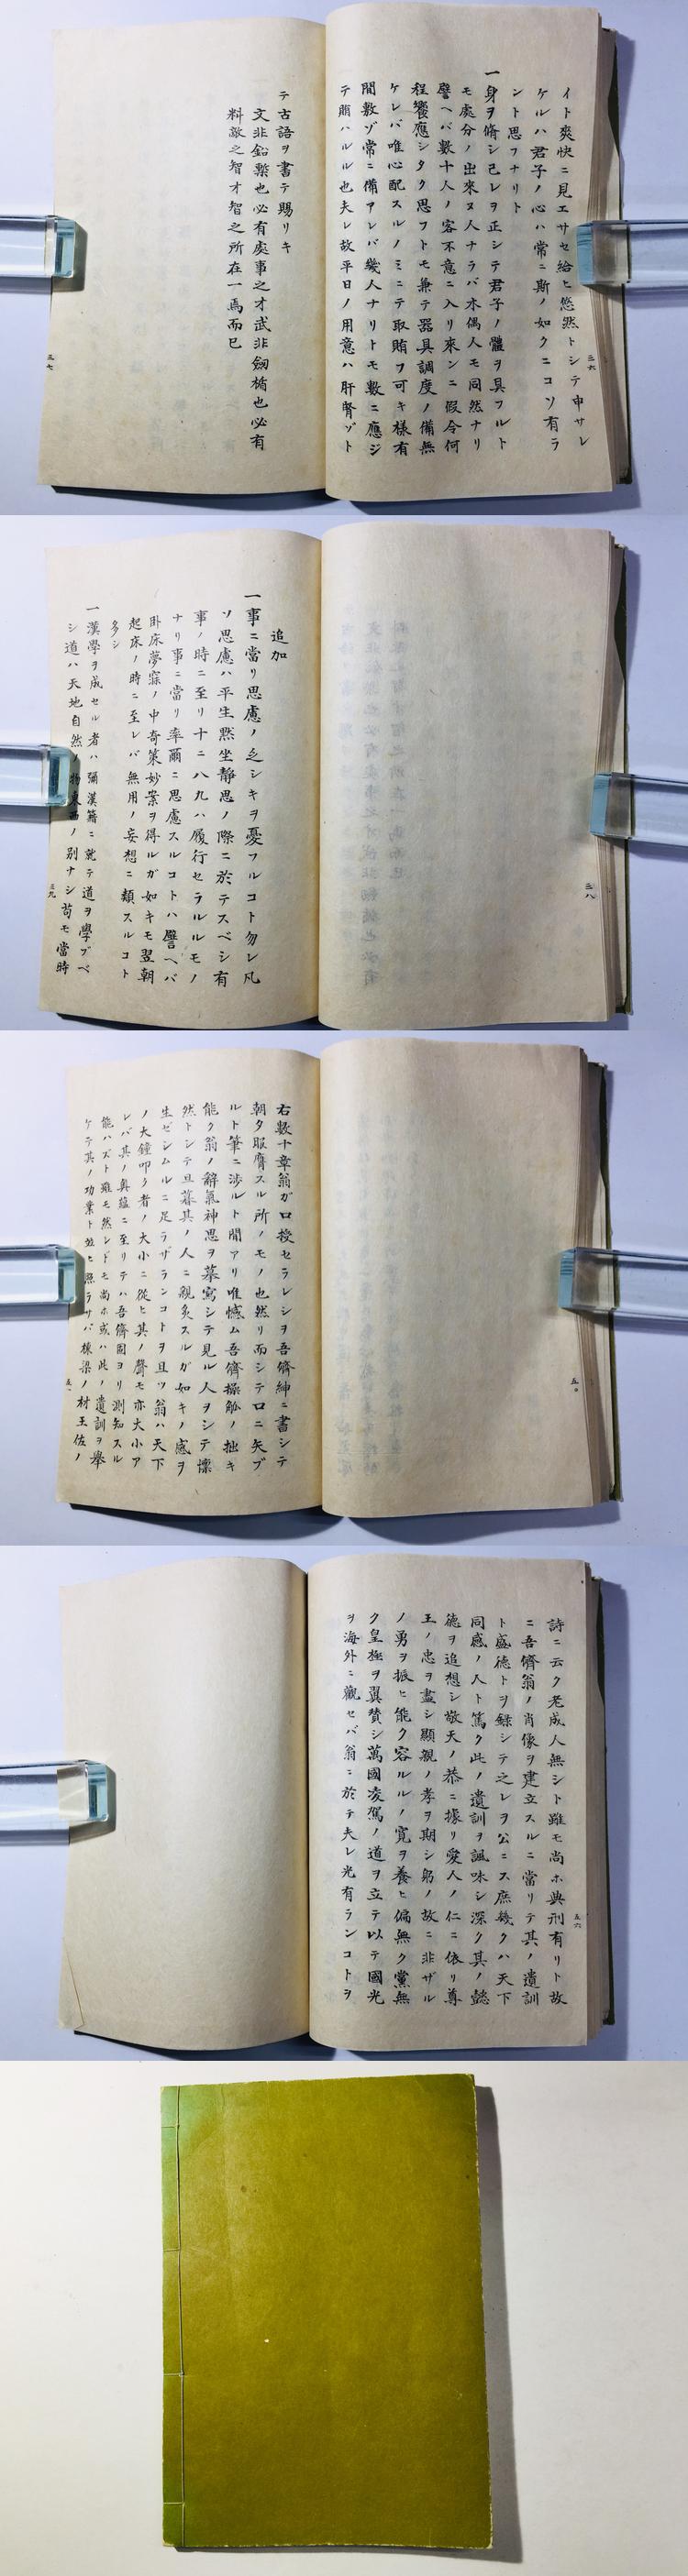 イト爽快ニ見エサセ給ヒ悠然トシテ申サレ
ケルハ君子ノ心ハ常ニ斯ノ如クニコソ有ラ
ント思フナリト
一身ヲ脩シ己レヲ正シテ君子ノ體ヲ具フルト
モ處分ノ出來ヌ人ナラバ木偶人モ同然ナリ
譬ヘバ數十人ノ客不意ニ入リ來ンニ假令何
程饗應シタク思フトモ兼テ器具調度ノ備無
ケレバ唯心配スルノミニテ取賄フ可キ樣有
間敷ゾ常ニ備アレバ幾人ナリトモ數ニ應ジ
テ賄ハルル也夫レ故平日ノ用意ハ肝腎ゾト
三六
テ古語ヲ書テ賜リキ
文非鉛槧也必有處事之才武非劒楯也必有
料敵之智才智之所在一焉而已
三七
三八
追加
一事ニ當リ思慮ノ乏シキヲ憂フルコト勿レ凡
ソ思慮ハ平生黙坐靜思ノ際ニ於テスベシ有
事ノ時ニ至リ十ニ八九ハ履行セラルルモノ
ナリ事ニ當リ率爾ニ思慮スルコトハ譬ヘバ
臥床夢寐ノ中奇策妙案ヲ得ルガ如キモ翌朝
起床ノ時ニ至レバ無用ノ妄想ニ類スルコト
多シ
一漢學ヲ成セル者ハ彌漢籍ニ就テ道ヲ學ブベ
シ道ハ天地自然ノ物東西ノ別ナシ苟モ當時
三九
右數十章翁ガ口授セラレシヲ吾儕紳ニ書シテ
朝夕服膺スル所ノモノ也然リ而シテ口ニ矢ブ
ルト筆ニ渉ルト間アリ唯憾ム吾儕操觚ノ拙キ
能ク翁ノ辭氣神思ヲ摹寫シテ見ル人ヲシテ懍
然トシテ旦暮其ノ人ニ親炙スルガ如キノ感ヲ
生ゼシムルニ足ラザランコトヲ且ツ翁ハ天下
ノ大鐘叩ク者ノ大小ニ從ヒ其ノ聲モ亦大小ア
レバ其ノ奧蘊ニ至リテハ吾儕固ヨリ測知スル
能ハズト雖モ然レドモ尚ホ或ハ此ノ遺訓ヲ舉
ケテ其ノ功業ト竝ヒ照ラサバ棟梁ノ材王佐ノ
詩ニ云ク老成人無シト雖モ尚ホ典刑有リト故
ニ吾儕翁ノ肖像ヲ建立スルニ當リテ其ノ遺訓
ト盛德トヲ録シテ之レヲ公ニス庶幾クハ天下
同感ノ人ト篤ク此ノ遺訓ヲ諷味シ深ク其ノ懿
德ヲ追想シ敬天ノ恭ニ據リ愛人ノ仁ニ依リ尊
王ノ忠ヲ盡シ顯親ノ孝ヲ期シ躬ノ故ニ非ザル
ノ勇ヲ振ヒ能ク容ルルノ寛ヲ養ヒ偏無ク黨無
ク皇極ヲ翼賛シ萬國凌駕ノ道ヲ立テ以テ國光
ヲ海外ニ觀セバ翁ニ於テ夫レ光有ランコトヲ
五六